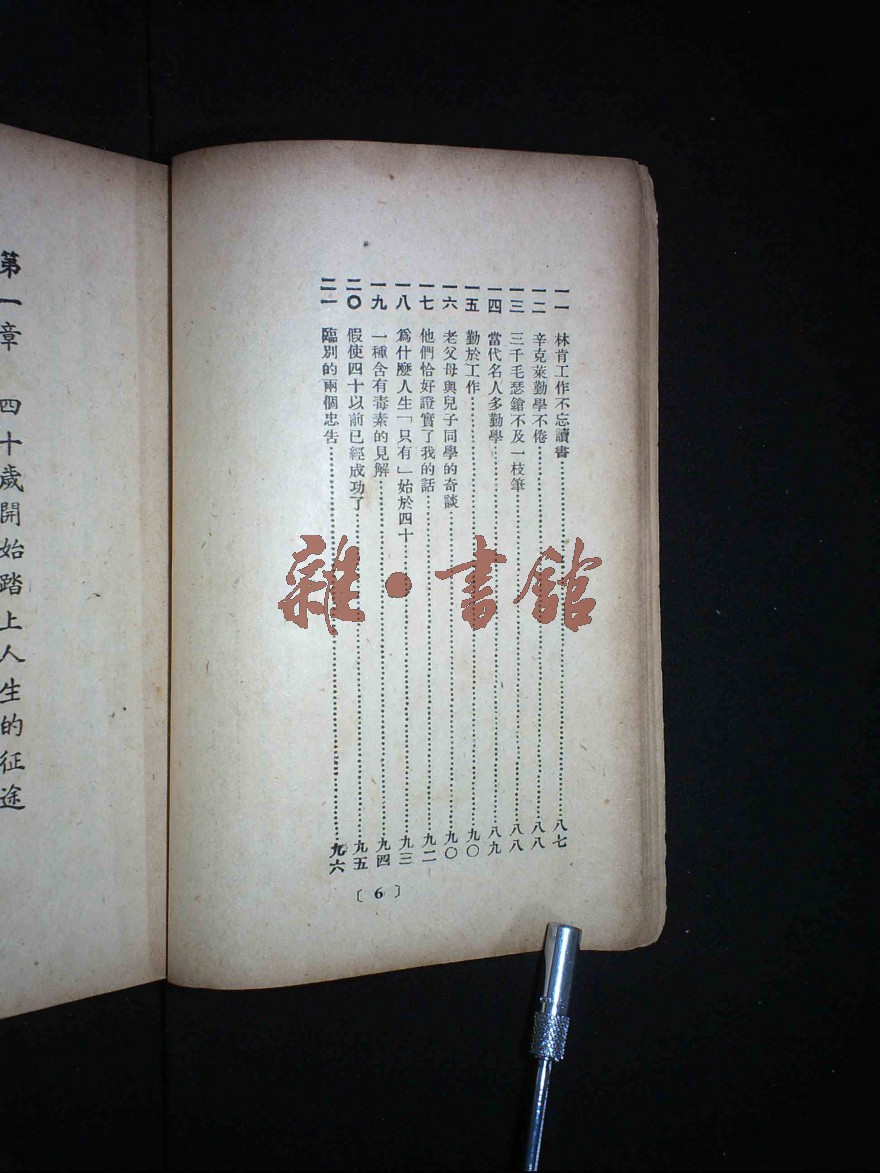 一一 林肯工作不忘讀書……八七
一二 辛克萊勤學不倦……八八
一三 三千毛瑟鎗不及一枝筆……八八
一四 當代名人多勤學……八九
一五 勤於工作……九〇
一六 老父母與兒子同學的奇談……九〇
一七 他們恰好證實了我的話……九二
一八 爲什麼人生「只有」始於四十……九三
一九 一種含有毒素的見解……九四
二〇 假使四十以前已經成功了……九五
二一 臨別的兩個忠告……九六
〔6〕
第一章 四十歲開始踏上人生的征途
雜·書館